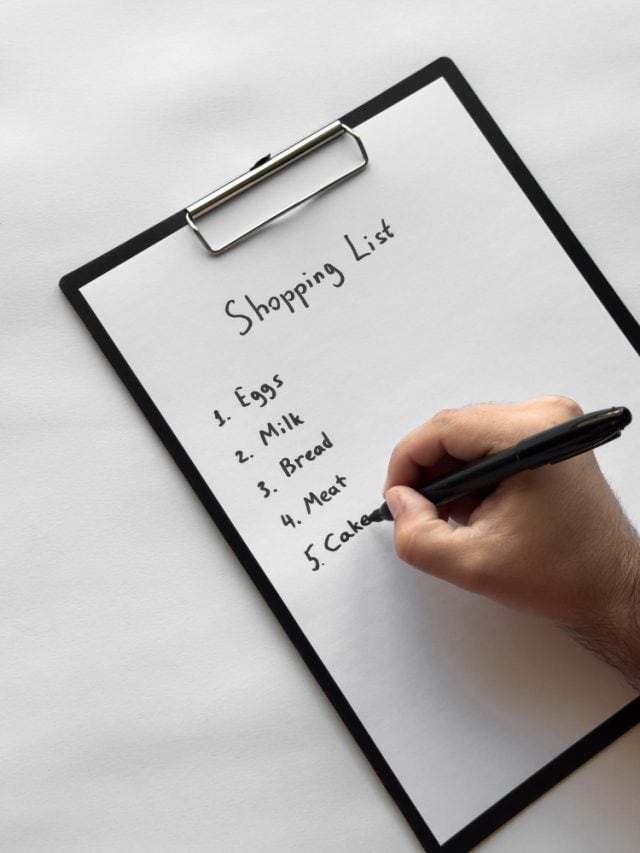 Shopping List
1. Eggs
2. Milk
3. Bread
4. Meat
5. Cake